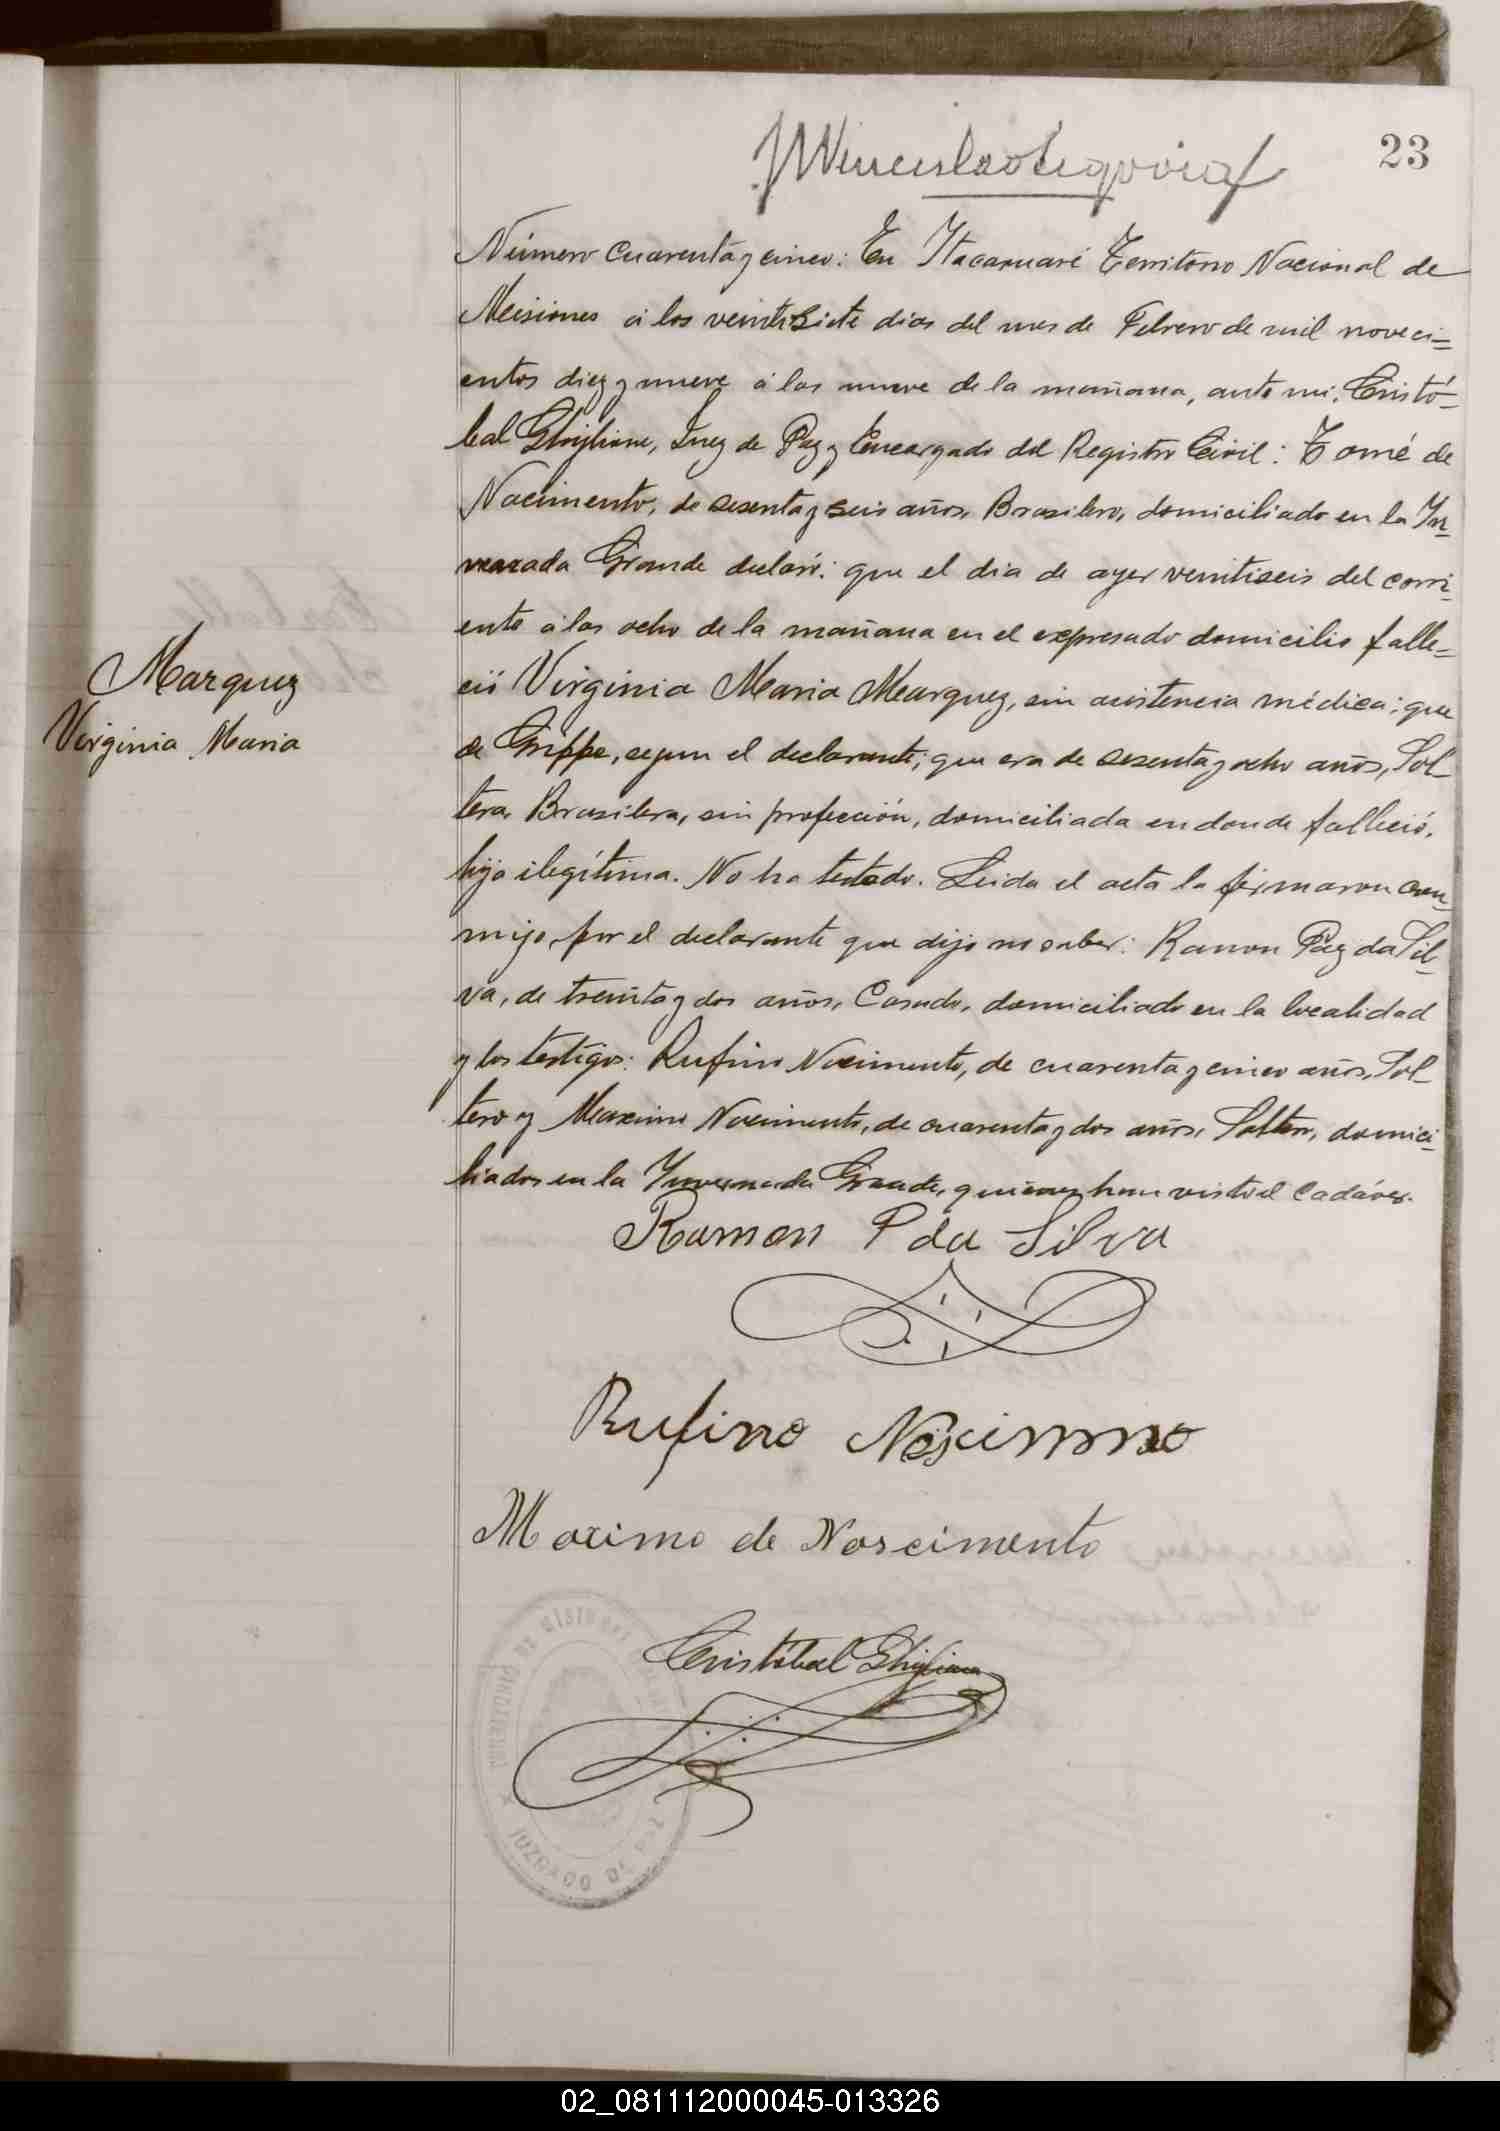 23
Número cuarenta y cinco: En Itacaruaré Territorio Nacional de
Misiones á los veintisiete dias del mes de Febrero de mil noveci=
entos diez y nueve á las nueve de la mañana, ante mi, Cristó-
bal Ghiglione, Juez de Paz y Encargado del Registro Civil: Tomé de
Nacimento, de sesenta y seis años, Brasilero, domiciliado en la In-
vernada Grande declaró: que el dia de ayer veintiseis del corri-
ente á las ocho de la mañana en el expresado domicilio falle=
ció Virginia Maria Marquez, sin asistencia médica; que
de Grippe, segun el declarante; que era de sesenta y ocho años, Sol-
tera, Brasilera, sin profección, domiciliada en donde falleció,
hija ilegítima. No ha testado. Leida el acta la firmaron con-
migo, por el declarante que dijo no saber: Ramon Paz da Sil-
va, de treinta y dos años, Casado, domiciliado en la localidad
y los testigos: Rufino Nacimento, de cuarenta y cinco años, Sol-
tero y Maximo Nacimento, de cuarenta y dos años, Soltero, domici-
liados en la Invernada Grande, quienes han visto el cadáver.
Marquez
Virginia Maria
Ramon P da Silva
Rufino
Maximo de Nascimento
Cristóbal Ghiglione
JUZGADO DE PAZ
02_081112000045-013326